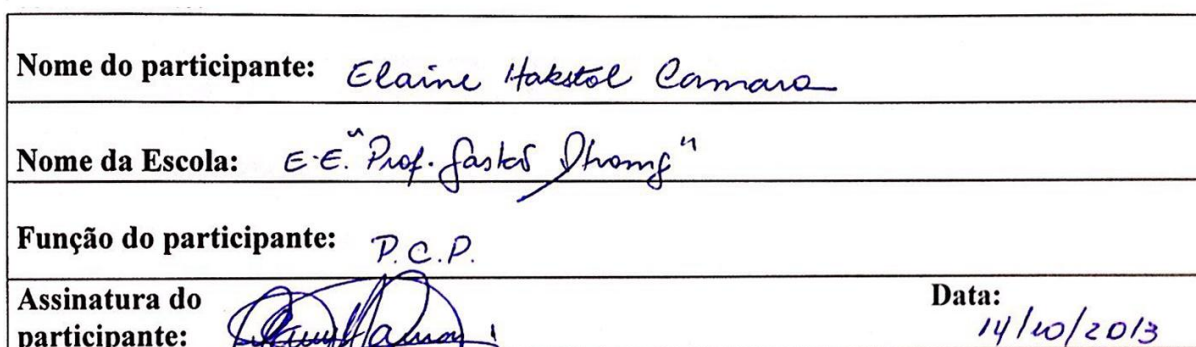 Nome do participante: Elaine Hakstol Camara
Nome da Escola: E.E. "Prof. Gastão
Função do participante: P.C.P.
Assinatura do Data:
participante: 14/10/2013